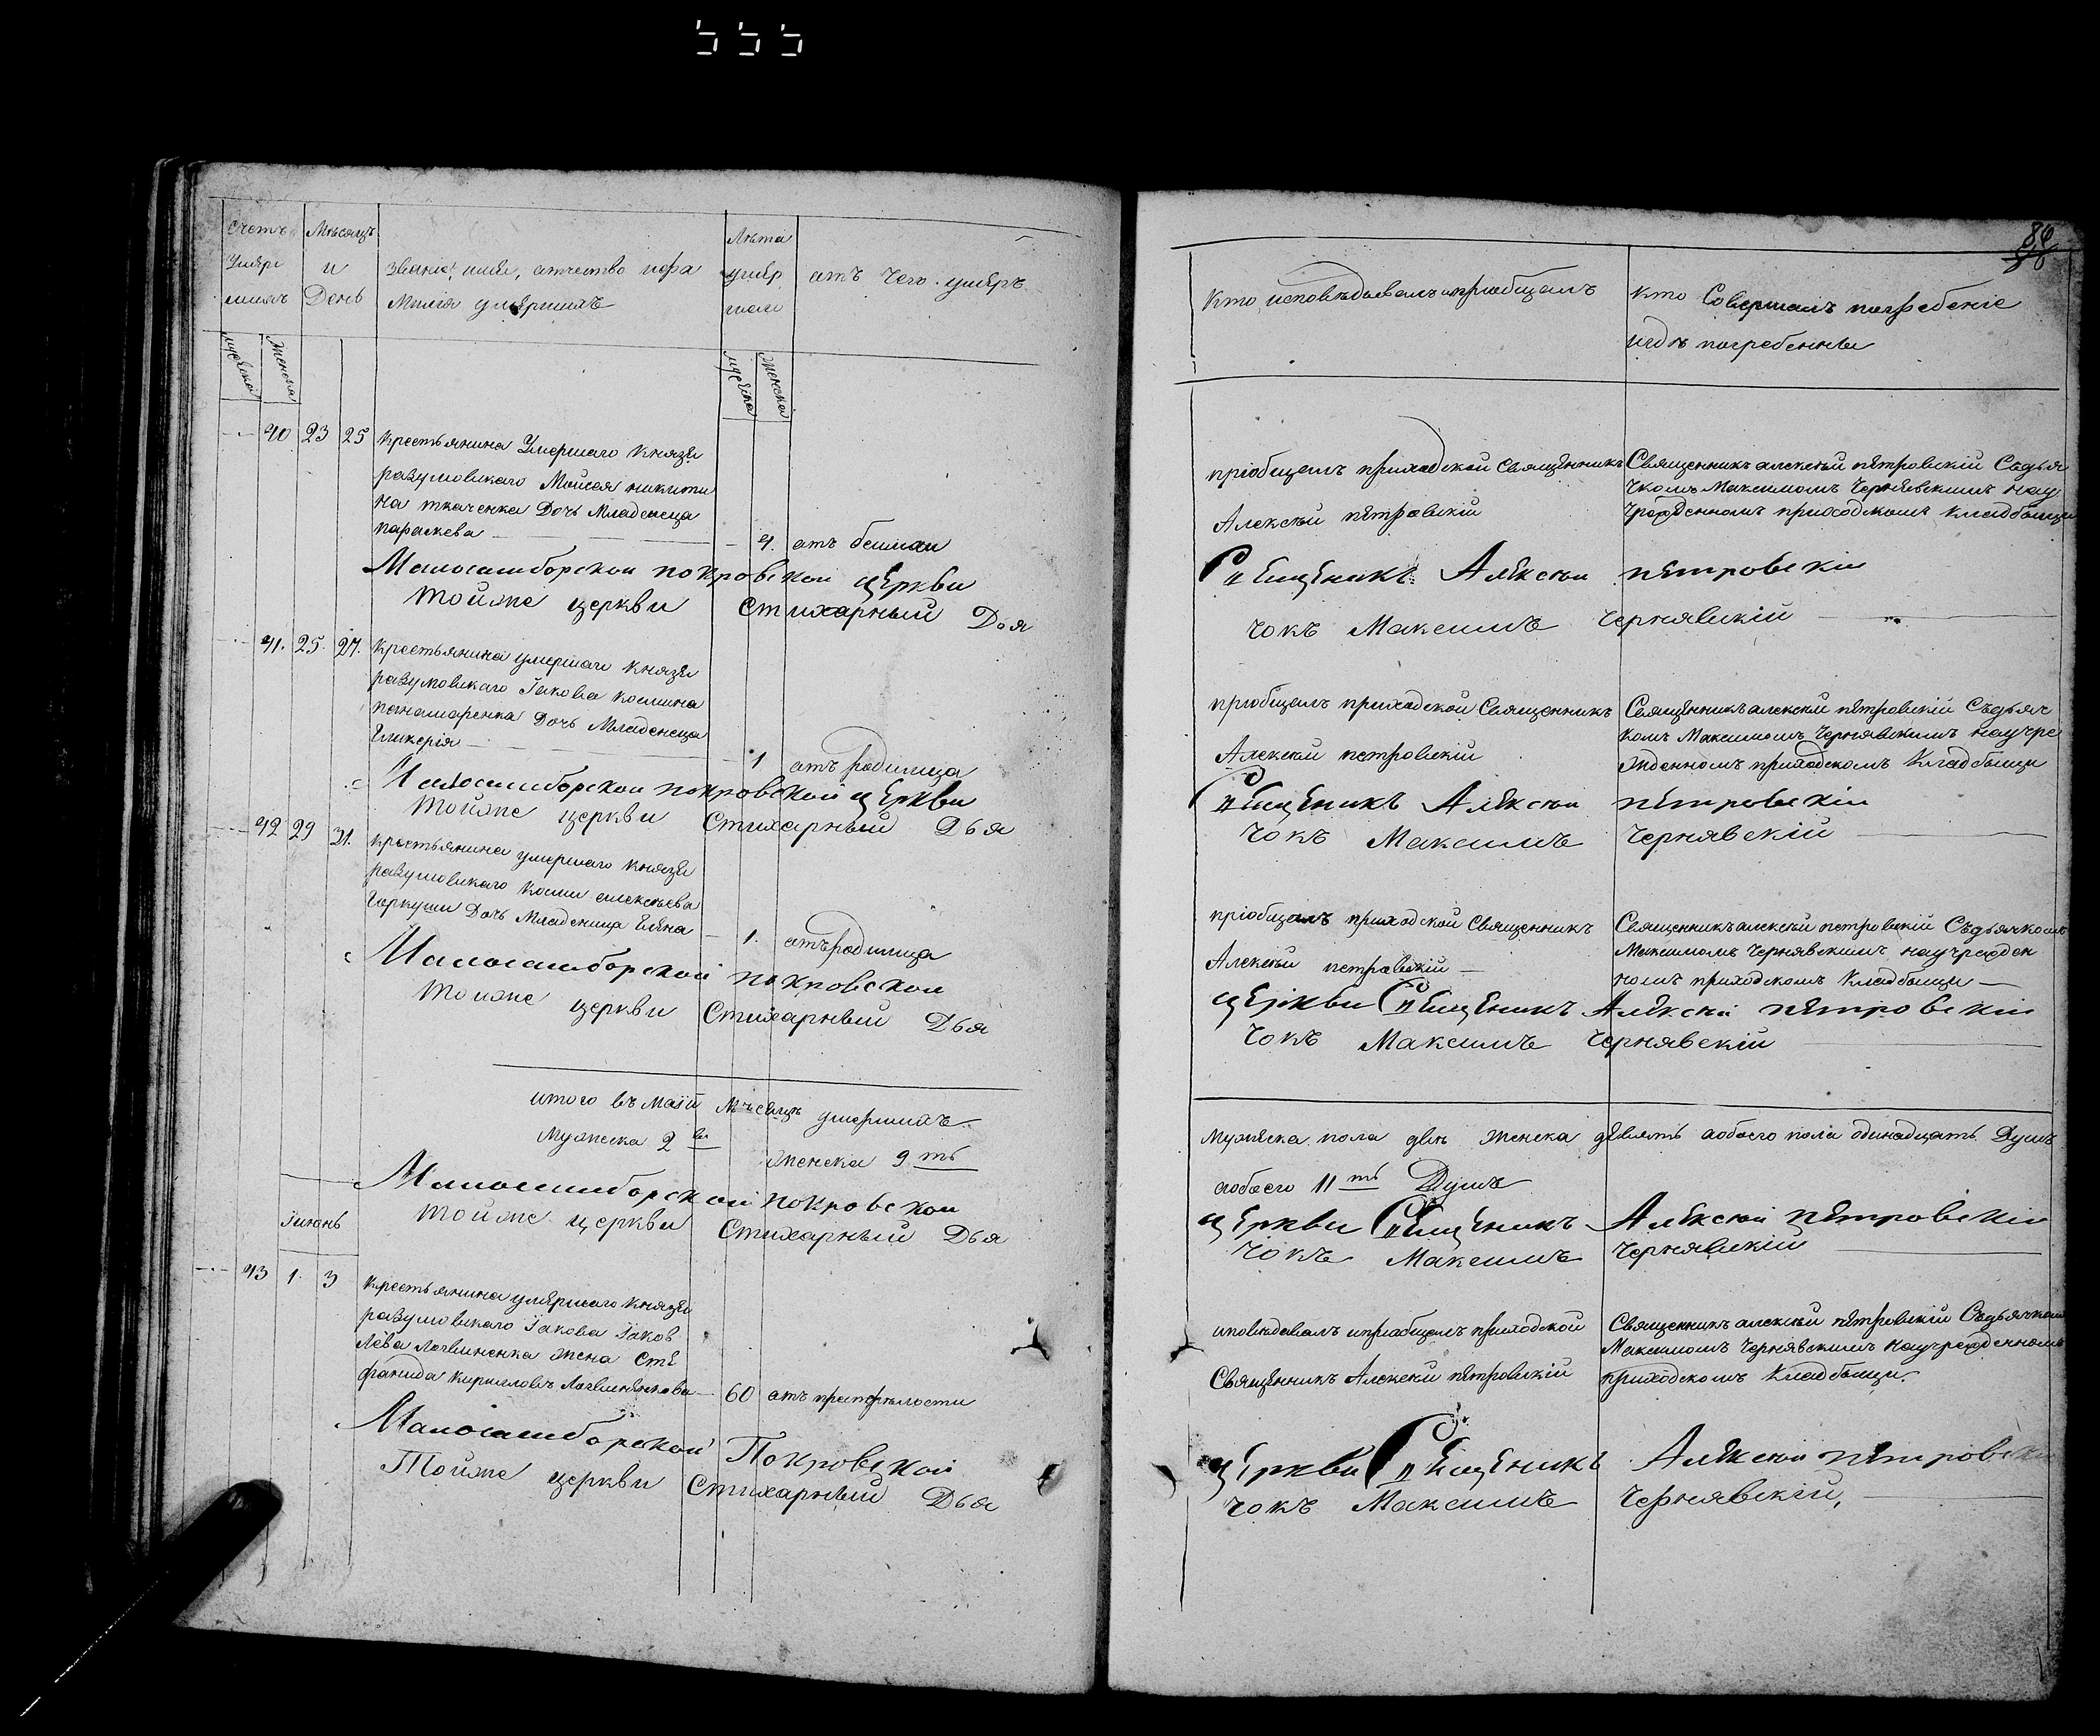 Счетъ
умер
шихъ
Мѣсяцъ
и
День
званіе, имя, отчество и фа
милія умершихъ
Лѣта
умер
шаго
отъ чего умеръ
мужеска
женска
мужеска
женска
40 23 25 крестьянина умершаго князя
разумовскаго Моисея никити
на ткаченка Дочь Младенеца
параскева 4. отъ
Малосамборской покровской церкви
тойже церкви Стихарный Дья
41. 25. 27. крестьянина умершаго князя
разумовскаго Іакова космина
понамаренка Дочь Младенеца
Гликерія 1 отъ родимца
Малосамборской покровской церкви
тойже церкви Стихарный Дья
42 29 31. крестьянина умершаго князя
разумовскаго космы алексѣева
Гаркуши Дочь Младеница Елена 1. отъ родимца
Малосамборской покровской
тойже церкви Стихарный Дья
итого въ маіи мѣсяцѣ умершихъ
Мужеска 2 ва женска 9 ть
Малосамборской покровской
тойже церкви Стихарный Дья
Іюнь
43 1. 3 крестьянина умершаго князя
разумовскаго Іакова Іаков
лева Логвиненка жена Сте
фанида кириллова Логвиненкова 60 отъ престарѣлости
Малосамборской Покровской
Тойже церкви Стихарный Дья
86
кто исповѣдывалъ и приобщалъ
кто Совершалъ погребеніе
и гдѣ погребенны
пріобщалъ приходской Священникъ
Алексѣй петровскій
Священникъ алексѣй петровскій Съдья
чкомъ Максимомъ Чернявскимъ на у
чрежденномъ приходскомъ кладбыщи
Священикъ Алексѣй петровскій
чокъ Максимъ чернявскій
пріобщалъ приходской Священникъ
Алексѣй петровскій
Священникъ алексѣй петровскій Съдьяч
комъ Максимомъ Чернявскимъ на учре
жденномъ приходскомъ Кладбыщи
Священикъ Алексѣй петровскій
чокъ Максимъ чернявскій
пріобщалъ приходской Священникъ
Алексѣй петровскій
Священникъ алексѣй петровскій Съдьячкомъ
Максимомъ Чернявскимъ на учрежден
номъ приходскомъ Кладбыщи
церкви Священикъ Алексѣй петровскій
чокъ Максимъ чернявскій
мужеска пола двѣ женска девять аобоего пола одинадцать Душъ
аобоего 11 ть Душъ
церкви Священикъ Алексѣй петровскій
чокъ Максимъ чернявскій
исповѣдовалъ и приобщалъ приходской
Священникъ Алексѣй петровскій
Священникъ алексѣй петровскій Съдьячкомъ
Максимомъ Чернявскимъ на учрежденномъ
приходскомъ Кладбыщи
церкви Священикъ Алексѣй петровскій
чокъ Максимъ чернявскій,